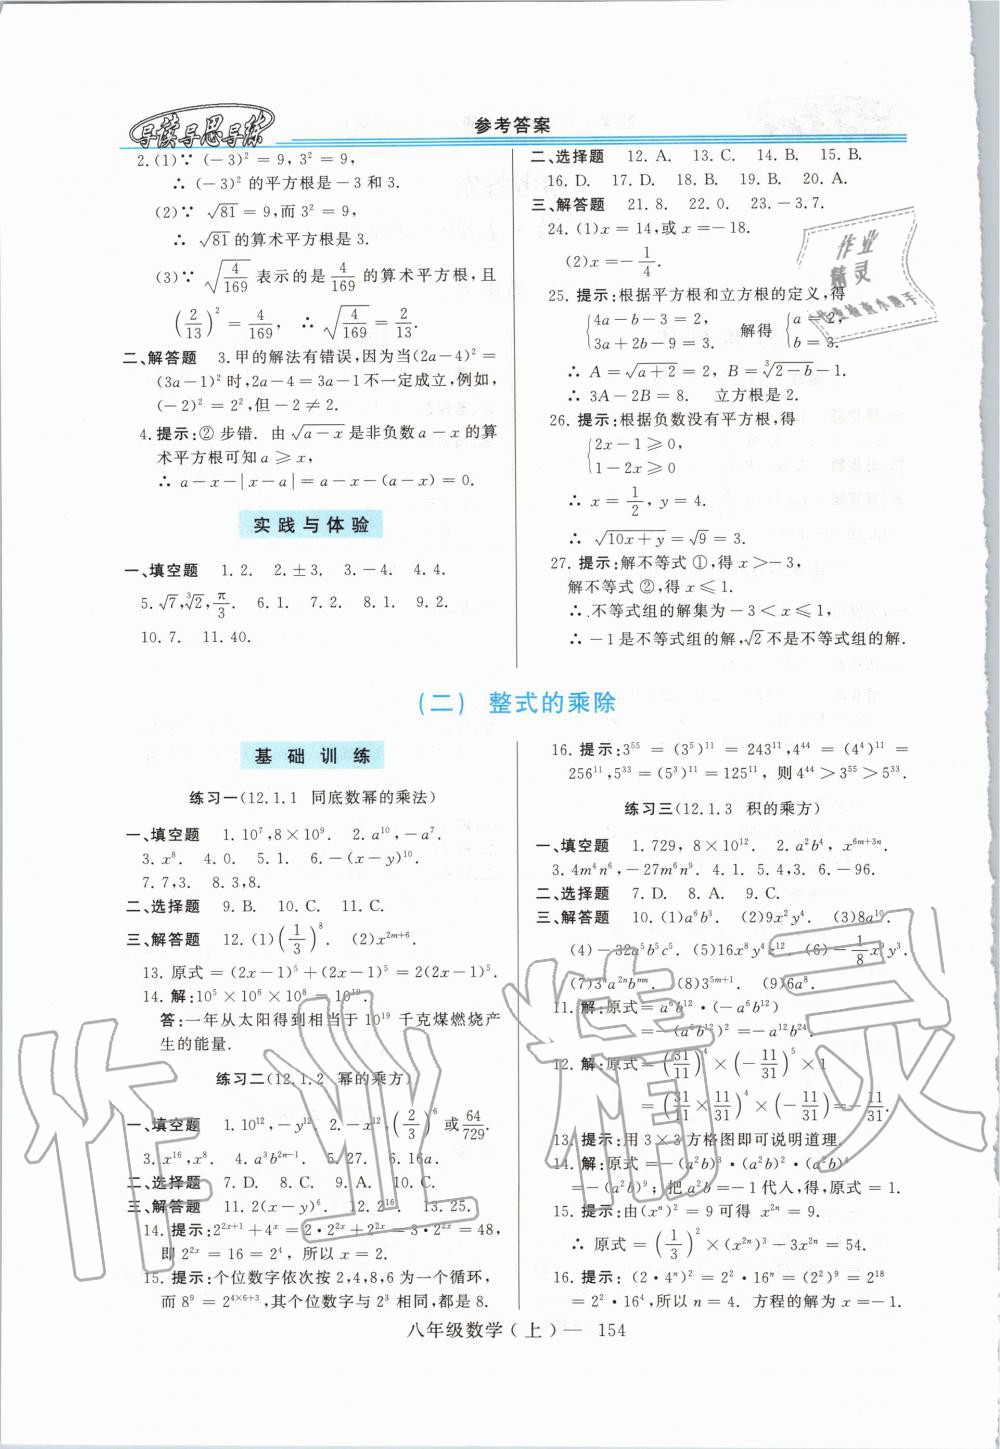 导读导思导练
参考答案
2.(1)∵ (-3)² = 9, 3² = 9,
∴ (-3)² 的平方根是-3和3.
(2)∵ √81 = 9,而 3² = 9,
∴ √81 的算术平方根是3.
(3)∵ √(4/169) 表示的是 4/169 的算术平方根,且
(2/13)² = 4/169, ∴ √(4/169) = 2/13.
二、解答题 3.甲的解法有错误,因为当(2a-4)² =
(3a-1)² 时,2a-4=3a-1不一定成立,例如,
(-2)² = 2²,但-2≠2.
4. 提示:② 步错. 由 √(a-x) 是非负数 a-x 的算
术平方根可知 a≥x,
∴ a-x-|x-a|=a-x-(a-x)=0.
实践与体验
一、填空题 1.2. 2.±3. 3.-4. 4.4.
5.√7,³√2,π/3. 6.1. 7.2. 8.1. 9.2.
10.7. 11.40.
二、选择题 12. A. 13. C. 14. B. 15. B.
16. D. 17. D. 18. D. 19. B. 20. A.
三、解答题 21.8. 22.0. 23.-3.7.
24. (1)x = 14,或 x=-18.
(2)x=-1/4.
25. 提示:根据平方根和立方根的定义,得
{4a-b-3=2, 3a+2b-9=3. 解得 {a=2, b=3.
∴ A=√(a+2)=2, B=³√(2-b)-1.
∴ 3A-2B=8. 立方根是2.
26. 提示:根据负数没有平方根,得
{2x-1≥0, 1-2x≥0
∴ x=1/2, y=4.
∴ √(10x+y)=√9=3.
27. 提示:解不等式 ①,得 x>-3,
解不等式 ②,得 x≤1,
∴ 不等式组的解集为-3<x≤1,
∴ -1是不等式组的解,√2不是不等式组的解.
(二) 整式的乘除
基础训练
练习一(12.1.1 同底数幂的乘法)
一、填空题 1.10⁷,8×10⁹. 2.a¹⁰,-a⁷.
3.x⁸. 4.0. 5.1. 6.-(x-y)¹⁰.
7.7,3. 8.3,8.
二、选择题 9. B. 10. C. 11. C.
三、解答题 12.(1)(1/3)⁸. (2)x²ᵐ⁺⁶.
13. 原式=(2x-1)⁵+(2x-1)⁵=2(2x-1)⁵.
14. 解:10⁵×10⁶×10⁸=10¹⁹.
答:一年从太阳得到相当于10¹⁹千克煤燃烧产
生的能量.
练习二(12.1.2 幂的乘方)
一、填空题 1.10¹²,-y¹². 2.-x¹²,(2/3)⁶或64/729.
3.x¹⁶,x⁸. 4.a³b²ⁿ⁻¹. 5.27. 6.16a.
二、选择题 7. D. 8. C. 9. A. 10. C.
三、解答题 11.2(x-y)⁶. 12.2¹⁶. 13.25.
14. 提示:2²ˣ⁺¹+4ˣ=2·2²ˣ+2²ˣ=3·2²ˣ=48,
即 2²ˣ=16=2⁴, 所以 x=2.
15. 提示:个位数字依次按 2,4,8,6 为一个循环,
而 8⁹=2⁴ˣ⁶⁺³,其个位数字与2³相同,都是8.
16. 提示:3⁵⁵=(3⁵)¹¹=243¹¹,4⁴⁴=(4⁴)¹¹=
256¹¹,5³³=(5³)¹¹=125¹¹, 则4⁴⁴>3⁵⁵>5³³.
练习三(12.1.3 积的乘方)
一、填空题 1.729, 8×10¹². 2.a²b⁴, x⁶ᵐ⁺³ⁿ.
3.4m⁴n⁶,-27m⁶n⁹. 4.1. 5.4,3. 6.-96.
二、选择题 7. D. 8. A. 9. C.
三、解答题 10. (1)a⁶b³. (2)9x²y⁴. (3)8a¹⁰.
(4)-32a⁵b⁵c⁵. (5)16x⁸y⁴z¹². (6)-1/8x³y³.
(7)3ⁿa²ⁿbᵐⁿ. (8)3⁵ᵐ⁺¹. (9)6a⁸.
11. 解:原式=a⁶b¹²·(-a⁶b¹²)
=-(a⁶b¹²)²=-a¹²b²⁴.
12. 解:原式=(31/11)⁴×(-11/31)⁵×1
=(31/11×11/31)⁴×(-11/31)=-11/31.
13. 提示:用 3×3 方格图即可说明道理.
14. 解:原式=-(a²b)³·(a²b)²·(a²b)⁴
=-(a²b)⁹; 把 a²b=-1代入,得,原式=1.
15. 提示:由(xⁿ)²=9可得 x²ⁿ=9.
∴ 原式=(1/3)²×(x²ⁿ)³-3x²ⁿ=54.
16. 提示: (2·4ⁿ)²=2²·16ⁿ=(2²)⁹=2¹⁸
=2²·16⁴,所以 n=4. 方程的解为 x=1.
八年级数学(上)— 154
作业
精灵
作业检查小助手
作业精灵